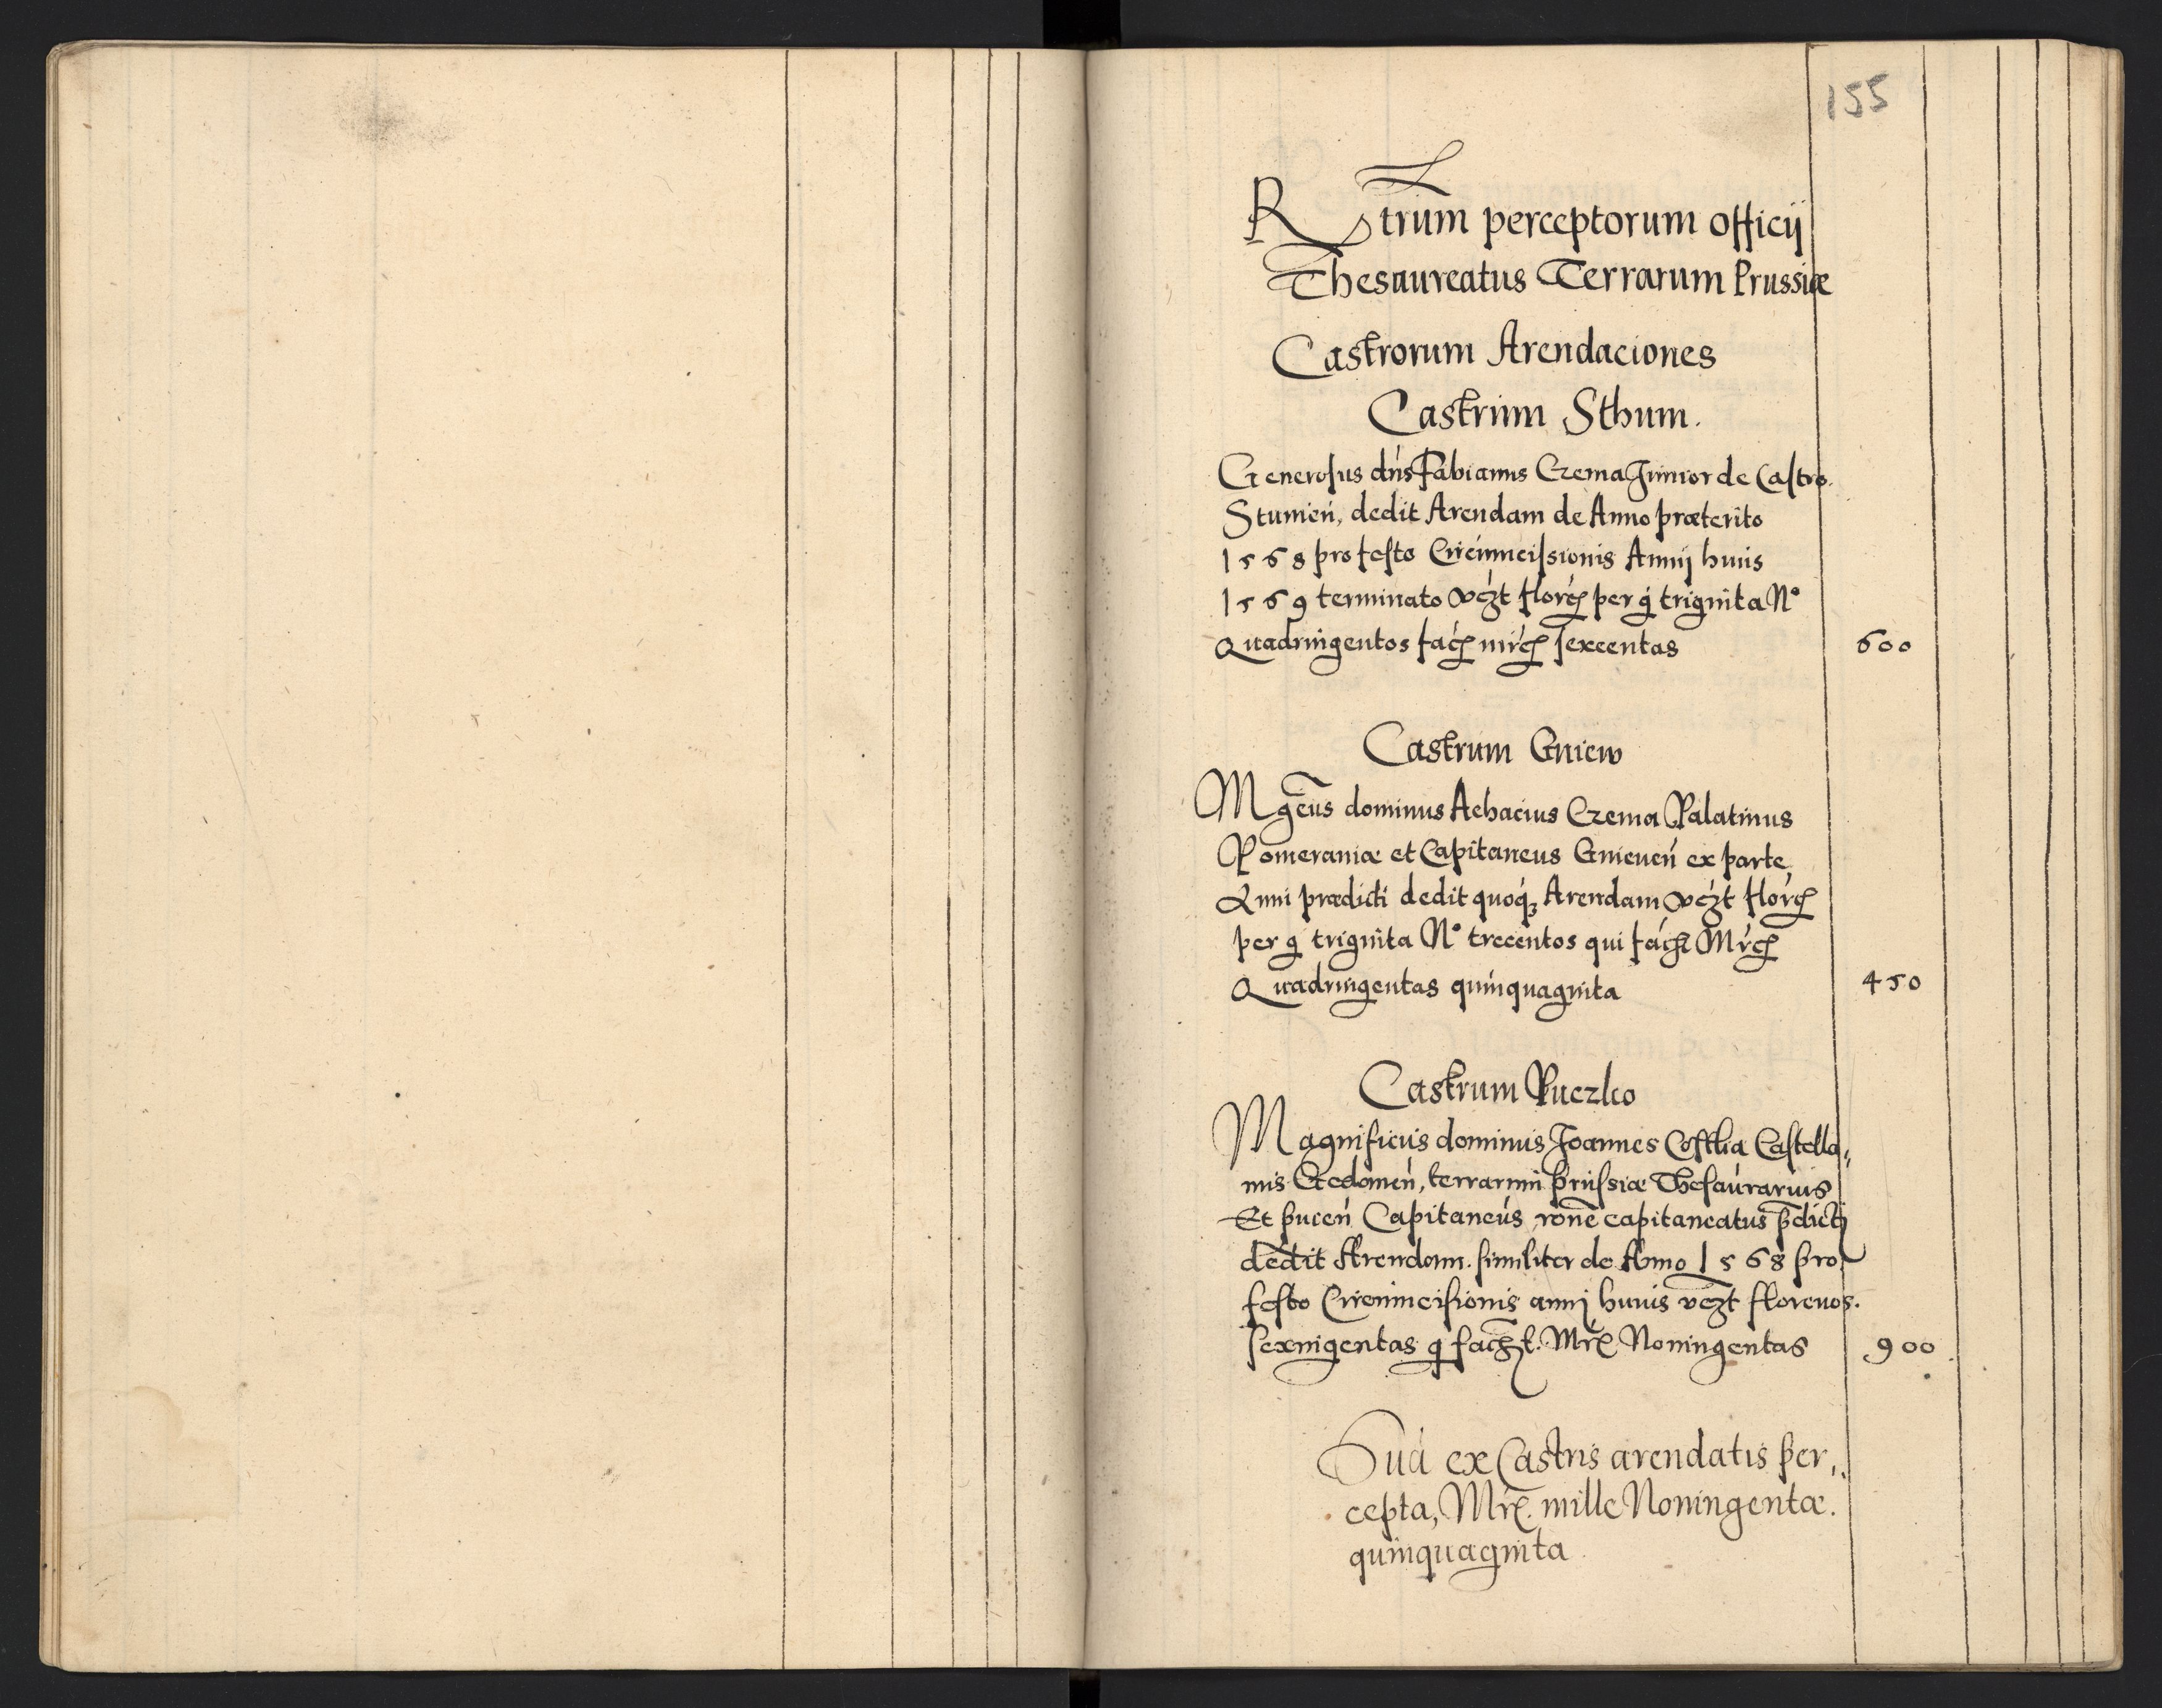 155
Rstrum perceptorum officij
Thesaureatus Terrarum Prussiæ
Castrorum Arendaciones
Castrum Sthum.
Generosus dns Fabianus Czema Junior de Castro
Stumen, dedit Arendam de Anno præterito
1568 pro festo Circumcissionis Annij huius
1569 terminato vczt florcz per g triginta N°
Quadringentos facz mrcz sexcentas 600
Castrum Gniew
Mgcus dominus Achacius Czema Palatinus
Pomeraniæ et Capitaneus Gnieuen ex parte
Anni prædicti dedit quoq3 Arendam vczt florcz
per g triginta N° trecentos qui faczt Mrcz
Quadringentas quinquaginta 450
Castrum Puczko
Magnificus dominus Joannes Costka Castella,,
nus Gedanen, terrarum Prussiæ Thesaurarius
Et pucen Capitaneus rone capitaneatus pdictj
dedit Arendam similiter de Anno 1568 pro
festo Circumcisionis annj huius vczt florenos.
sexingentas q faczt. Mrc Noningentas 900
Sua ex Castris arendatis per,,
cepta, Mrc. mille Noningentæ.
quinquaginta